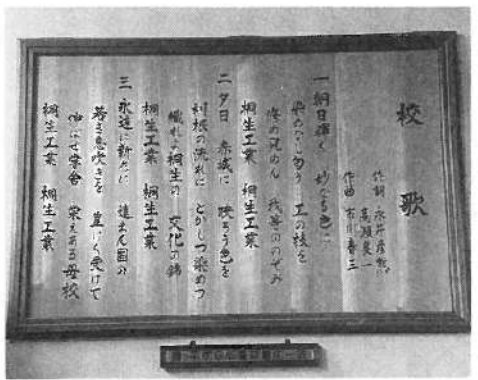 校歌
作詞 永井彦熊
高瀬良一
作曲 市川春三
一 朝日輝く 妙なる色に
染めなし匂う 工の枝を
修め究めん 我等ののぞみ
桐生工業 桐生工業
二 夕日 赤城に 映ろう色を
利根の流れに とかしつ染めつ
織れよ桐生の 文化の錦
桐生工業 桐生工業
三 永遠に新たに 進まん国の
若き息吹きを 直く受けて
伸ばせ学舎 栄えある母校
桐生工業 桐生工業